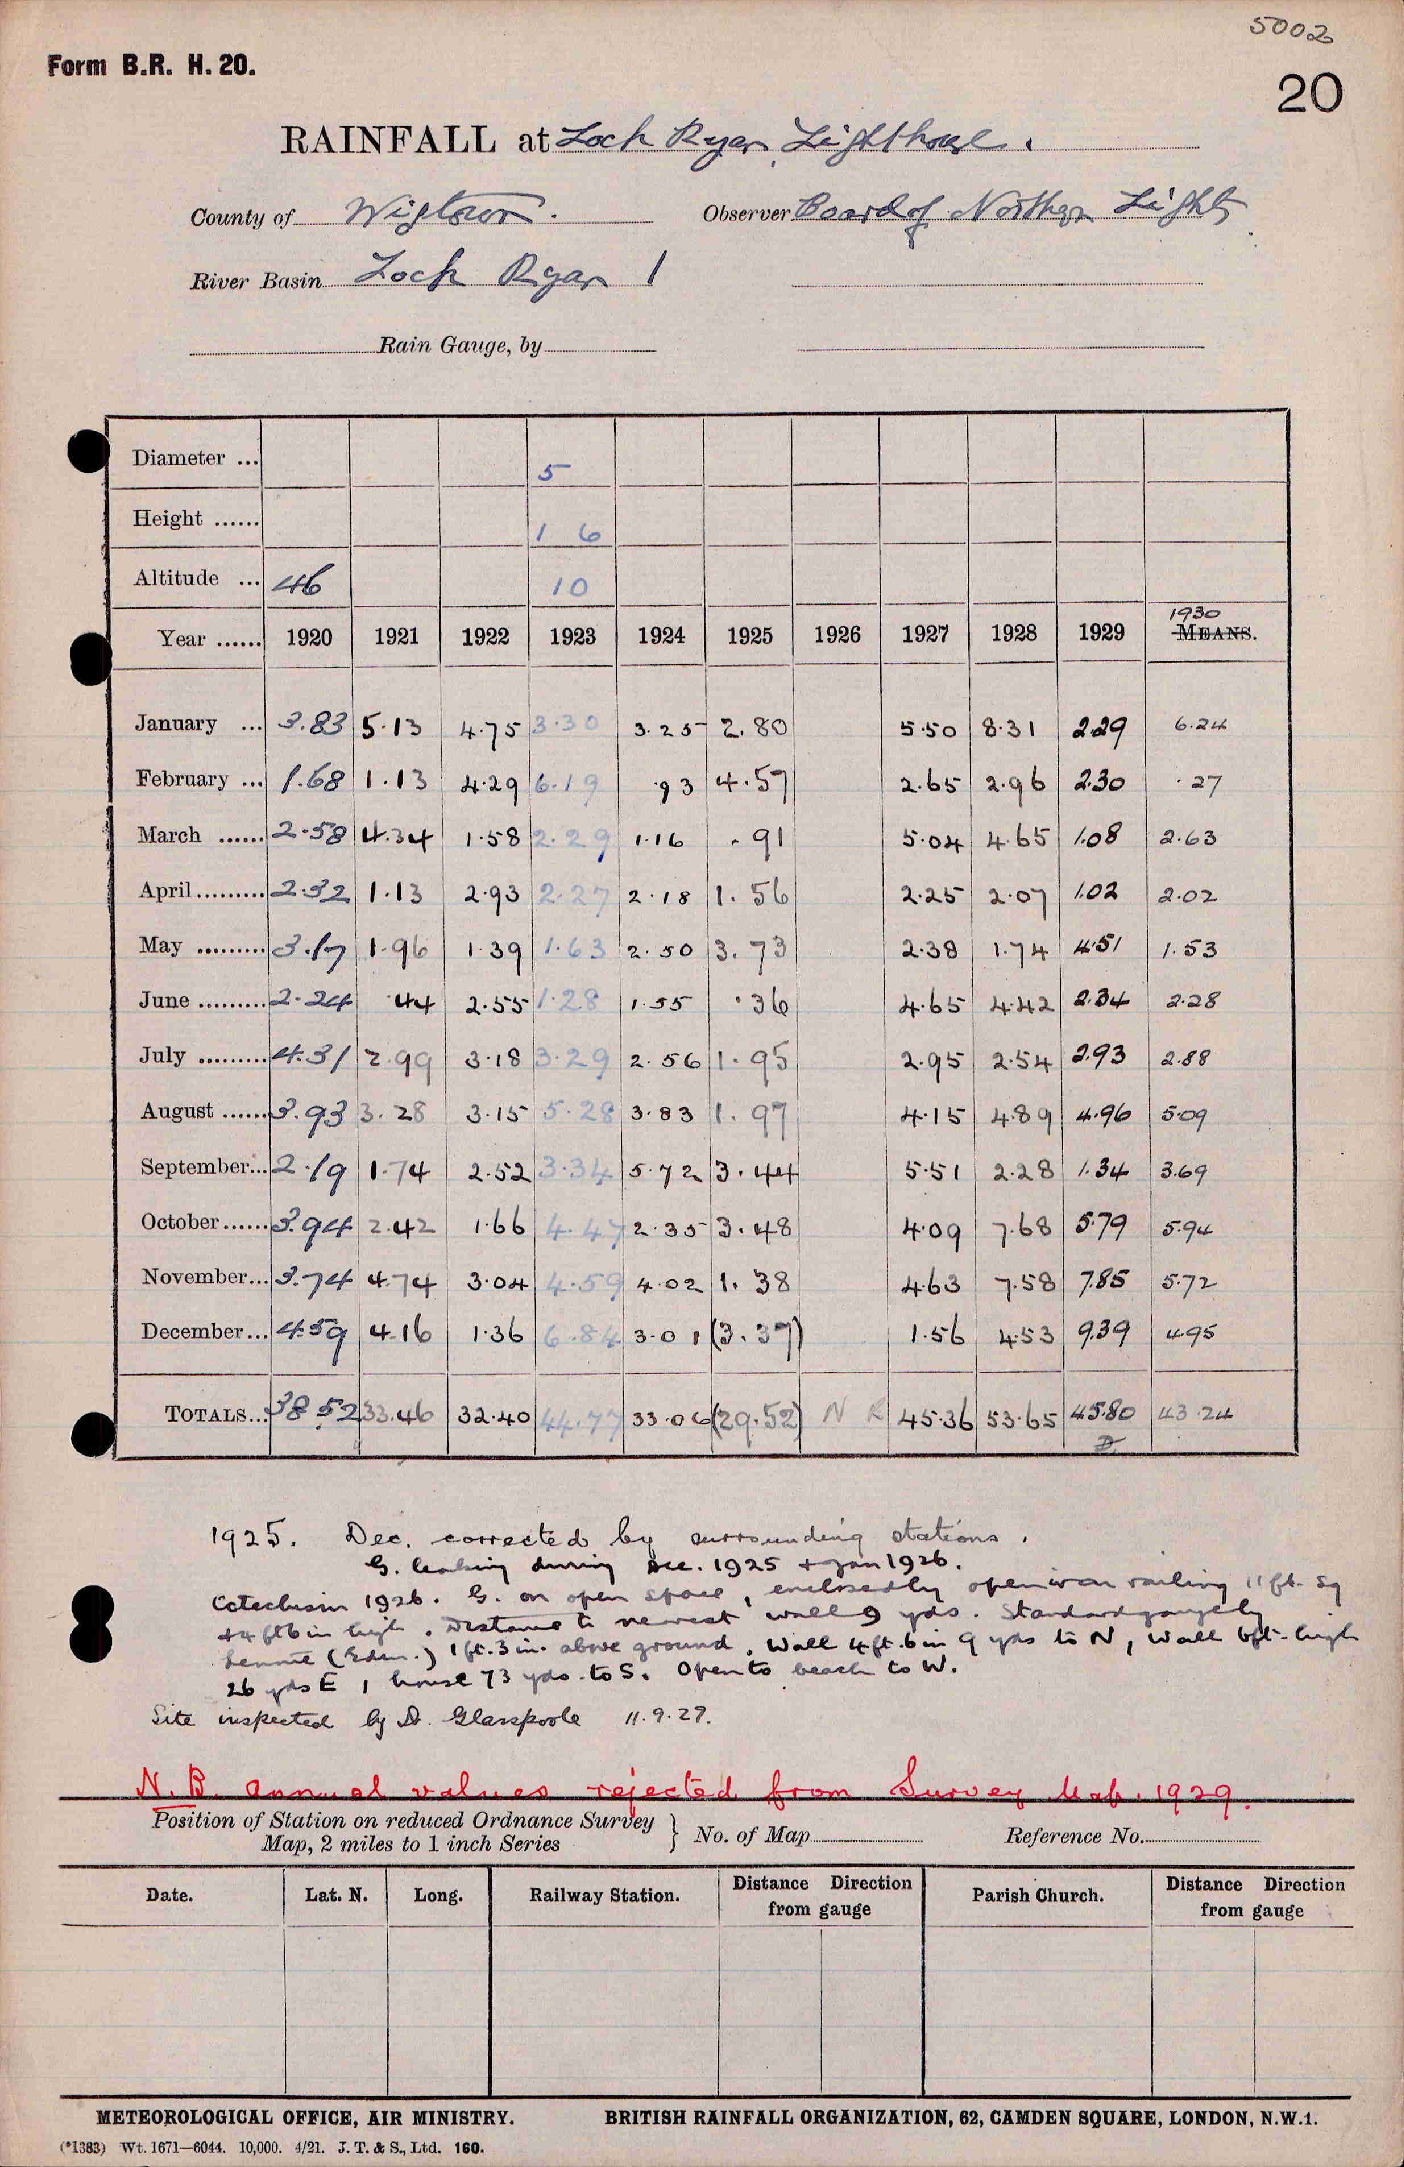 5002
Form B.R. H. 20.
20
RAINFALL at Loch Ryan Lighthouse.
County of Wigtown. Observer Board of Northern Lights
River Basin Loch Ryan 1
Rain Gauge, by
Diameter ... 5
Height ...... 1 6
Altitude ... 46 10
Year ...... 1920 1921 1922 1923 1924 1925 1926 1927 1928 1929 1930 MEANS.
January ... 3.83 5.13 4.75 3.30 3.25 2.80 5.50 8.31 2.29 6.24
February ... 1.68 1.13 4.29 6.19 .93 4.57 2.65 2.96 2.30 .27
March ...... 2.58 4.34 1.58 2.29 1.16 .91 5.04 4.65 1.08 2.63
April......... 2.32 1.13 2.93 2.27 2.18 1.56 2.25 2.07 1.02 2.02
May ......... 3.17 1.96 1.39 1.63 2.50 3.73 2.38 1.74 4.51 1.53
June ......... 2.24 .44 2.55 1.28 1.55 .36 4.65 4.42 2.34 2.28
July ......... 4.31 2.99 3.18 3.29 2.56 1.95 2.95 2.54 2.93 2.88
August ...... 3.93 3.28 3.15 5.28 3.83 1.97 4.15 4.89 4.96 5.09
September... 2.19 1.74 2.52 3.34 5.72 3.44 5.51 2.28 1.34 3.69
October...... 3.94 2.42 1.66 4.47 2.35 3.48 4.09 7.68 5.79 5.94
November... 3.74 4.74 3.04 4.59 4.02 1.38 4.63 7.58 7.85 5.72
December... 4.59 4.16 1.36 6.84 3.01 (3.37) 1.56 4.53 9.39 4.95
TOTALS... 38.52 33.46 32.40 44.77 33.06 (29.52) N R 45.36 53.65 45.80 43.24
1925. Dec. corrected by surrounding stations.
G. leaking during Dec. 1925 + Jan 1926.
Catechism 1926. G. on open space, enclosed by open iron railing 11 ft. sq
+ 4 ft 6 in high. Distance to nearest wall 9 yds. Standard gauge by
Lennie (Edin.) 1 ft. 3 in. above ground. Wall 4 ft. 6 in 9 yds to N, Wall 6ft. high
26 yds E, house 73 yds. to S. Open to beach to W.
Site inspected by Dr. Glasspoole 11.9.27.
N.B. Annual values rejected from Survey Map. 1929.
Position of Station on reduced Ordnance Survey Map, 2 miles to 1 inch Series } No. of Map Reference No.
Date. Lat. N. Long. Railway Station. Distance Direction from gauge Parish Church. Distance Direction from gauge
METEOROLOGICAL OFFICE, AIR MINISTRY. BRITISH RAINFALL ORGANIZATION, 62, CAMDEN SQUARE, LONDON, N.W.1.
(*1383) Wt. 1671—6044. 10,000. 4/21. J. T. & S., Ltd. 160.